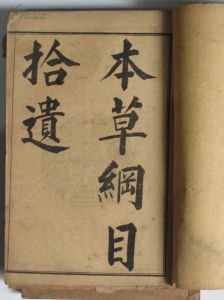 本草綱目
拾遺